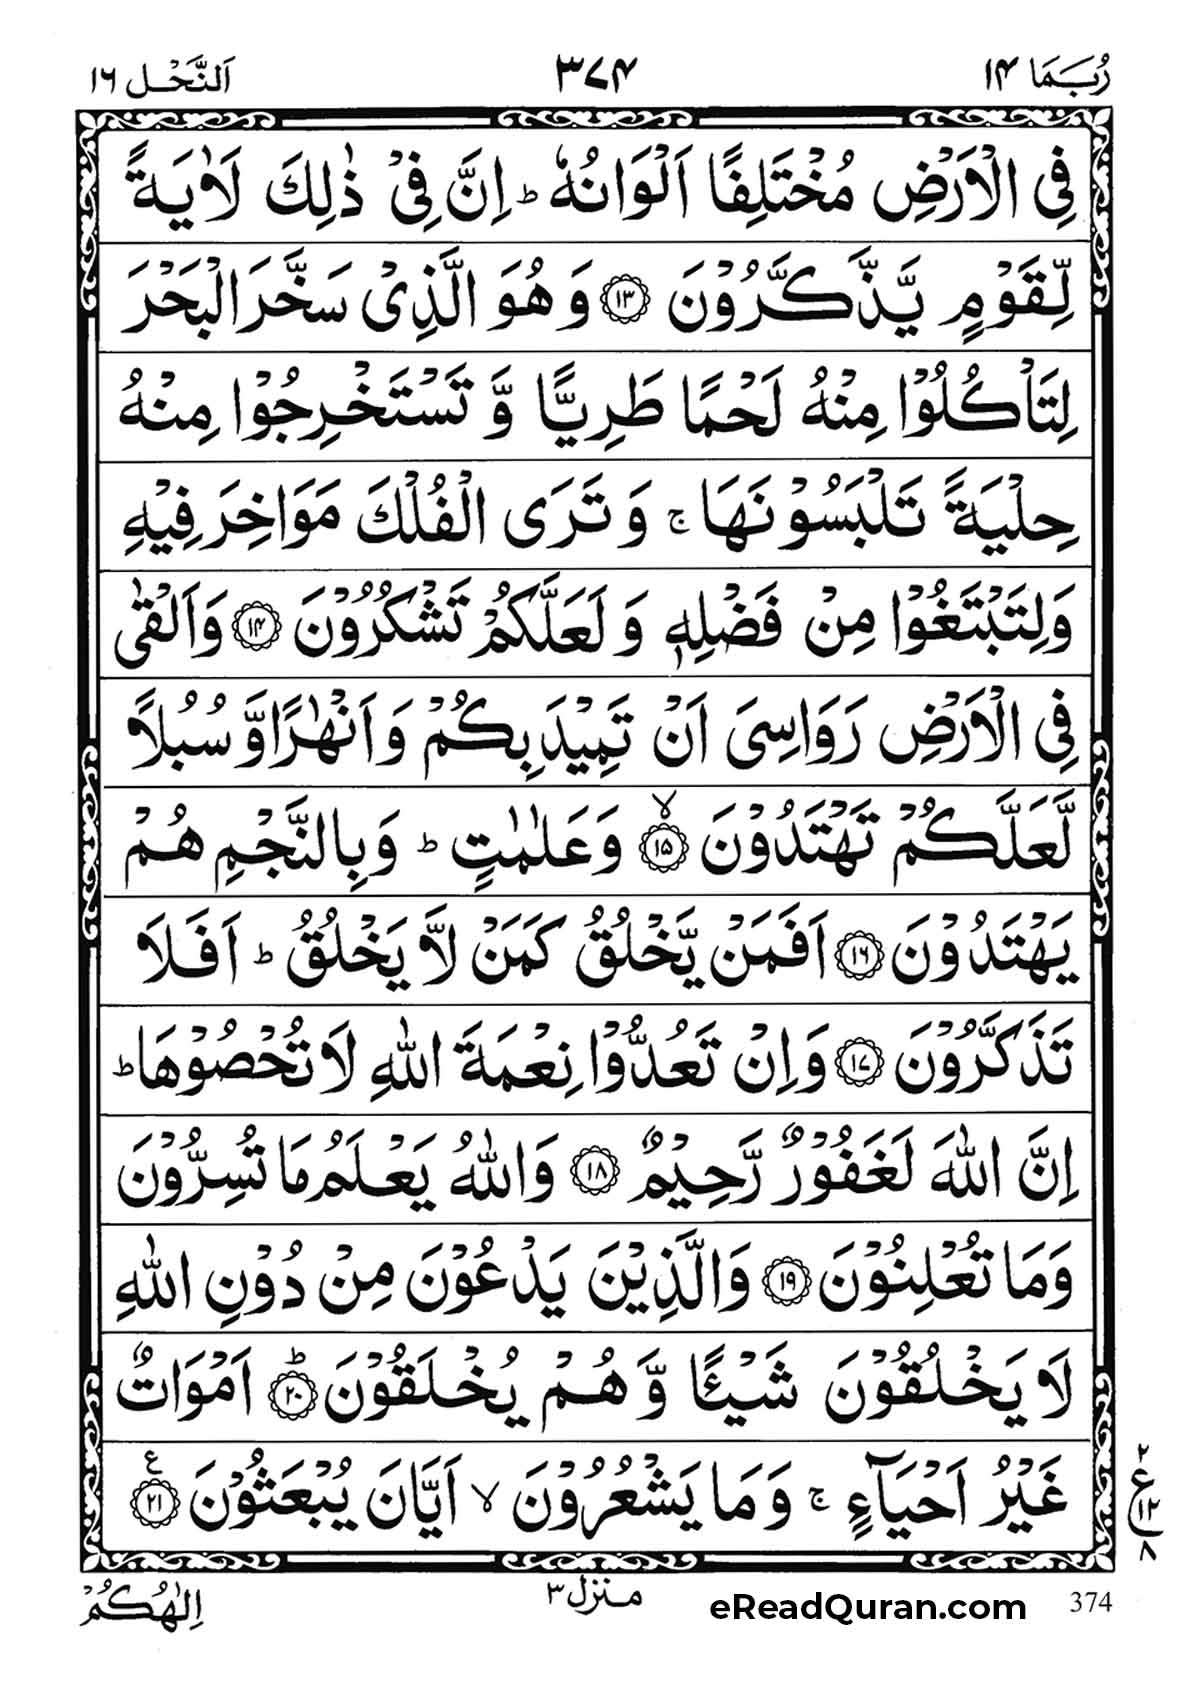 رُبَمَا ۱۴ ۳۷۴ اَلنَّحْل ۱۶
فِی الْاَرْضِ مُخْتَلِفًا اَلْوَانُهٗ ؕ اِنَّ فِیْ ذٰلِكَ لَاٰیَةً
لِّقَوْمٍ یَّذَّكَّرُوْنَ ۱۳ وَ هُوَ الَّذِیْ سَخَّرَ الْبَحْرَ
لِتَاْكُلُوْا مِنْهُ لَحْمًا طَرِیًّا وَّ تَسْتَخْرِجُوْا مِنْهُ
حِلْیَةً تَلْبَسُوْنَهَا ۚ وَ تَرَی الْفُلْكَ مَوَاخِرَ فِیْهِ
وَلِتَبْتَغُوْا مِنْ فَضْلِهٖ وَ لَعَلَّكُمْ تَشْكُرُوْنَ ۱۴ وَ اَلْقٰی
فِی الْاَرْضِ رَوَاسِیَ اَنْ تَمِیْدَ بِكُمْ وَ اَنْهٰرًا وَّ سُبُلًا
لَّعَلَّكُمْ تَهْتَدُوْنَ ۙ ۱۵ وَ عَلٰمٰتٍ ؕ وَ بِالنَّجْمِ هُمْ
یَهْتَدُوْنَ ۱۶ اَفَمَنْ یَّخْلُقُ كَمَنْ لَّا یَخْلُقُ ؕ اَفَلَا
تَذَكَّرُوْنَ ۱۷ وَ اِنْ تَعُدُّوْا نِعْمَةَ اللّٰهِ لَا تُحْصُوْهَا ؕ
اِنَّ اللّٰهَ لَغَفُوْرٌ رَّحِیْمٌ ۱۸ وَ اللّٰهُ یَعْلَمُ مَا تُسِرُّوْنَ
وَ مَا تُعْلِنُوْنَ ۱۹ وَ الَّذِیْنَ یَدْعُوْنَ مِنْ دُوْنِ اللّٰهِ
لَا یَخْلُقُوْنَ شَیْـًٔا وَّ هُمْ یُخْلَقُوْنَ ؕ ۲۰ اَمْوَاتٌ
غَیْرُ اَحْیَآءٍ ۚ وَ مَا یَشْعُرُوْنَ ۙ اَیَّانَ یُبْعَثُوْنَ ع ۲۱
۲
ع
۱۲
۸
اِلٰهُكُمْ منزل ۳ eReadQuran.com 374